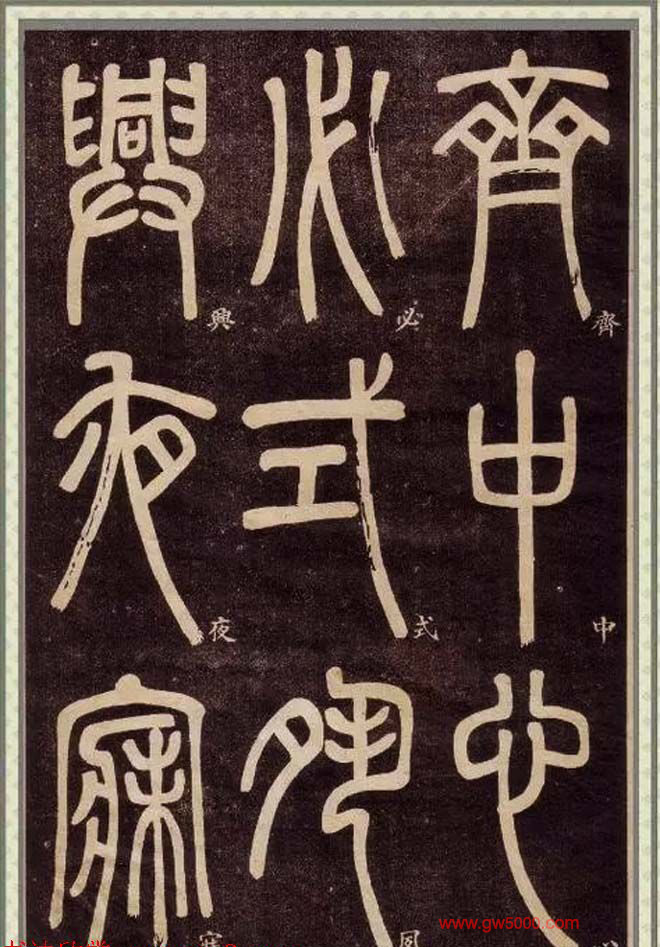 齊中心
齊
中
必式夙
必
式
興夜寐
興
夜
www.gw5000.com